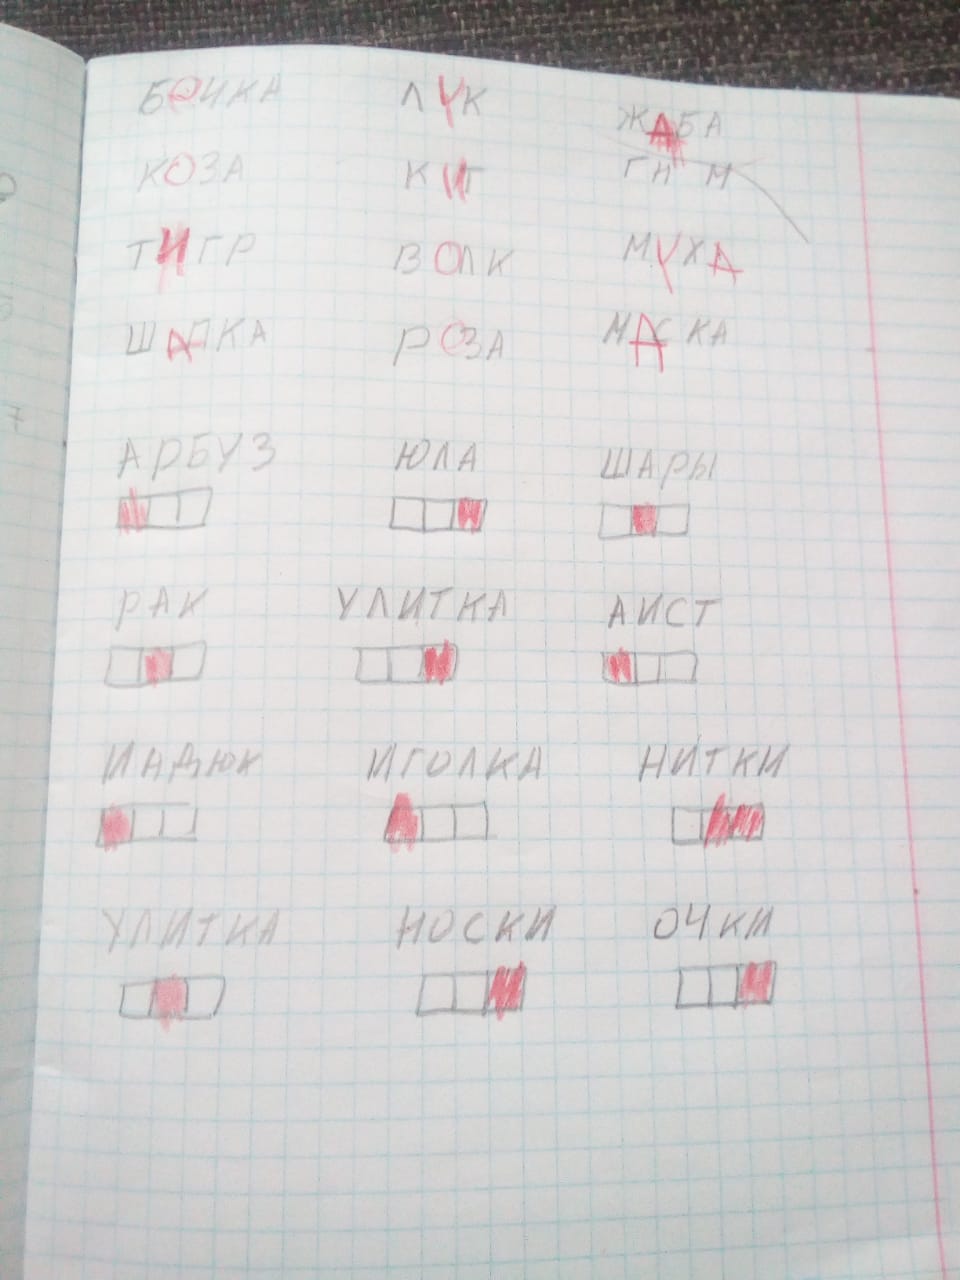 БОЧКА ЛУК ЖАБА
КОЗА КИТ ГН М
ТИГР ВОЛК МУХА
ШАПКА РОЗА МАСКА
АРБУЗ ЮЛА ШАРЫ
РАК УЛИТКА АИСТ
ИНДЮК ИГОЛКА НИТКИ
УЛИТКА НОСКИ ОЧКИ
7